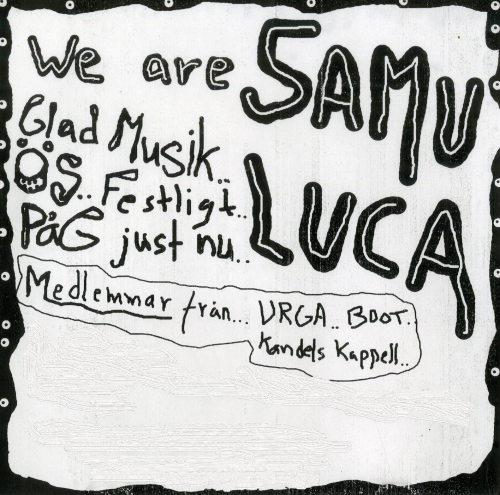 We are SAMU
LUCA
Glad Musik..
ÖS.. Festligt..
PåG just nu..
Medlemmar från... URGA.. BOOT..
Kandels Kappell..